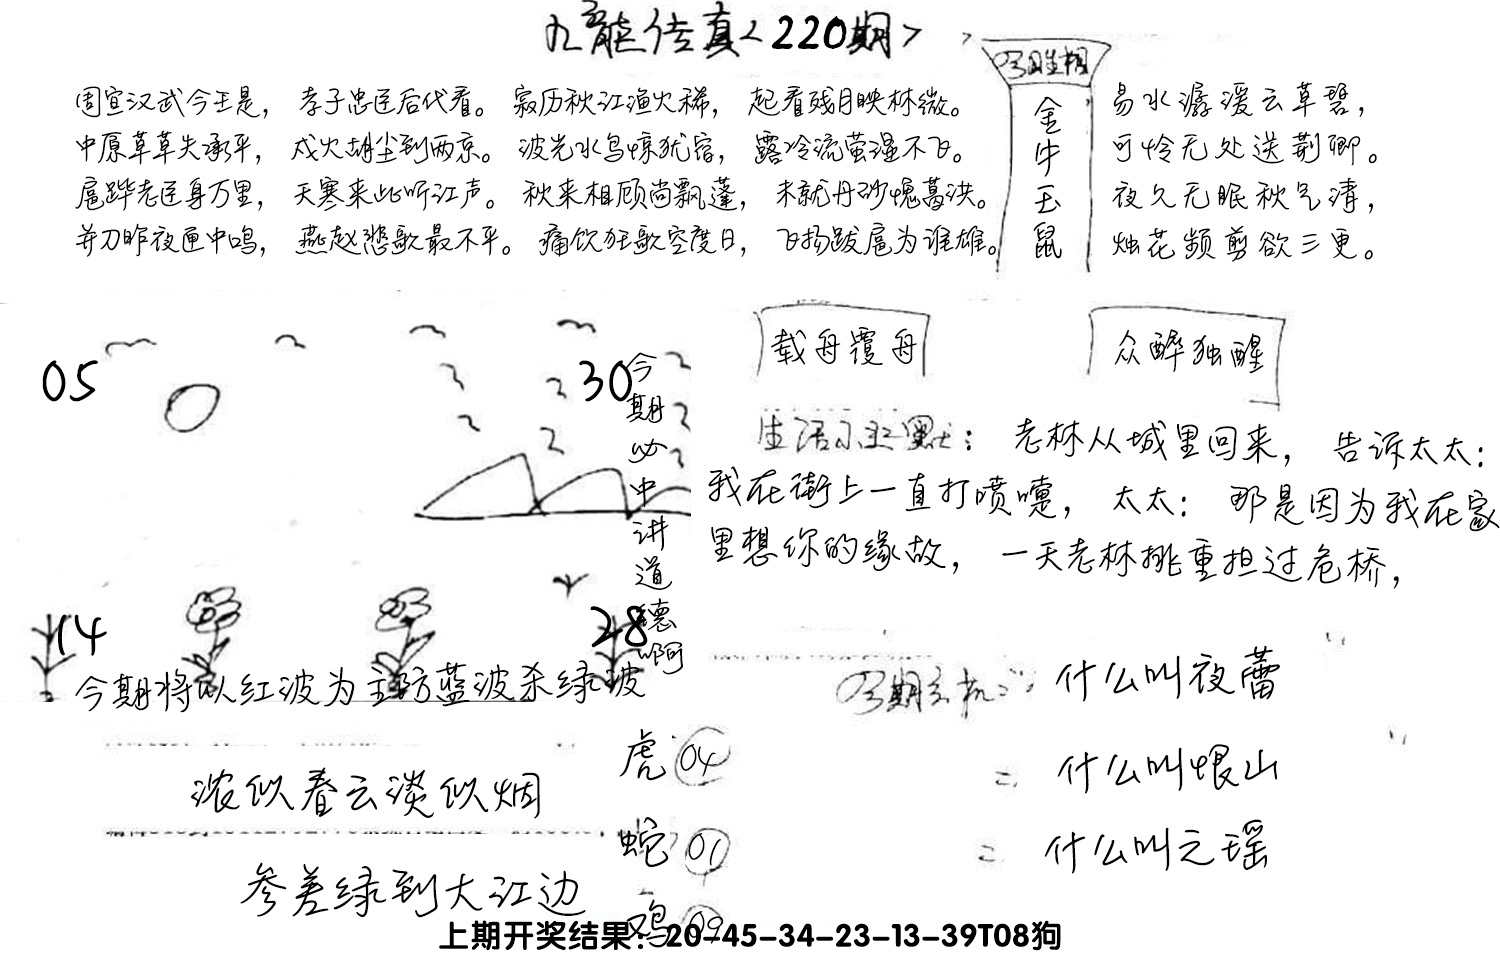 九龍传真<220期>
今期生相
金牛玉鼠
周宣汉武今王是，孝子忠臣后代看。
中原草草失承平，戍火胡尘到两京。
扈跸老臣身万里，天寒来此听江声。
并刀昨夜匣中鸣，燕赵悲歌最不平。
寂历秋江渔火稀，起看残月映林微。
波光水鸟惊犹宿，露冷流萤湿不飞。
秋来相顾尚飘蓬，未就丹砂愧葛洪。
痛饮狂歌空度日，飞扬跋扈为谁雄。
易水潺湲云草碧，
可怜无处送荆卿。
夜久无眠秋气清，
烛花频剪欲三更。
05
30
14
28
今期必中讲道德啊
今期将以红波为主防蓝波杀绿波
载舟覆舟
众醉独醒
生活小幽默：老林从城里回来，告诉太太：
我在街上一直打喷嚏，太太：那是因为我在家
里想你的缘故，一天老林挑重担过危桥，
今期玄机：什么叫夜蕾
= 什么叫恨山
= 什么叫之瑶
浓似春云淡似烟
参差绿到大江边
虎04
蛇01
鸡09
上期开奖结果：20-45-34-23-13-39T08狗